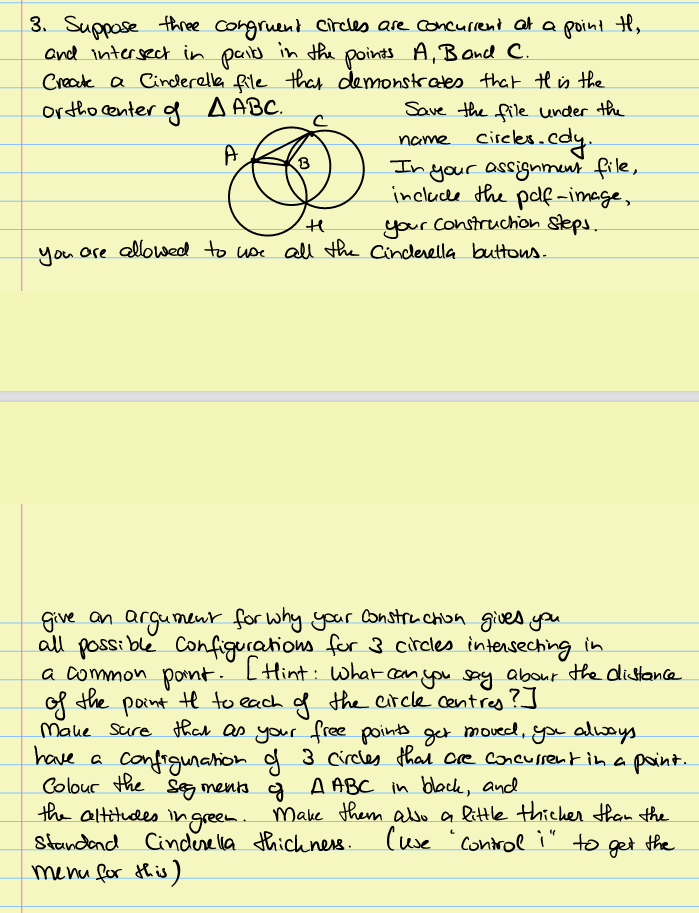 3. Suppose three congruent circles are concurrent at a point H,
and intersect in pairs in the points A, B and C.
Create a Cinderella file that demonstrates that H is the
orthocenter of △ ABC.
Save the file under the
name circles.cdy.
In your assignment file,
include the pdf-image,
your construction steps.
C
A
B
H
you are allowed to use all the Cinderella buttons.
give an argument for why your construction gives you
all possible configurations for 3 circles intersecting in
a common point. [Hint: What can you say about the distance
of the point H to each of the circle centres?]
Make sure that as your free points get moved, you always
have a configuration of 3 circles that are concurrent in a point.
Colour the segments of △ ABC in black, and
the altitudes in green. Make them also a little thicker than the
standard Cinderella thickness. (use "control i" to get the
menu for this)